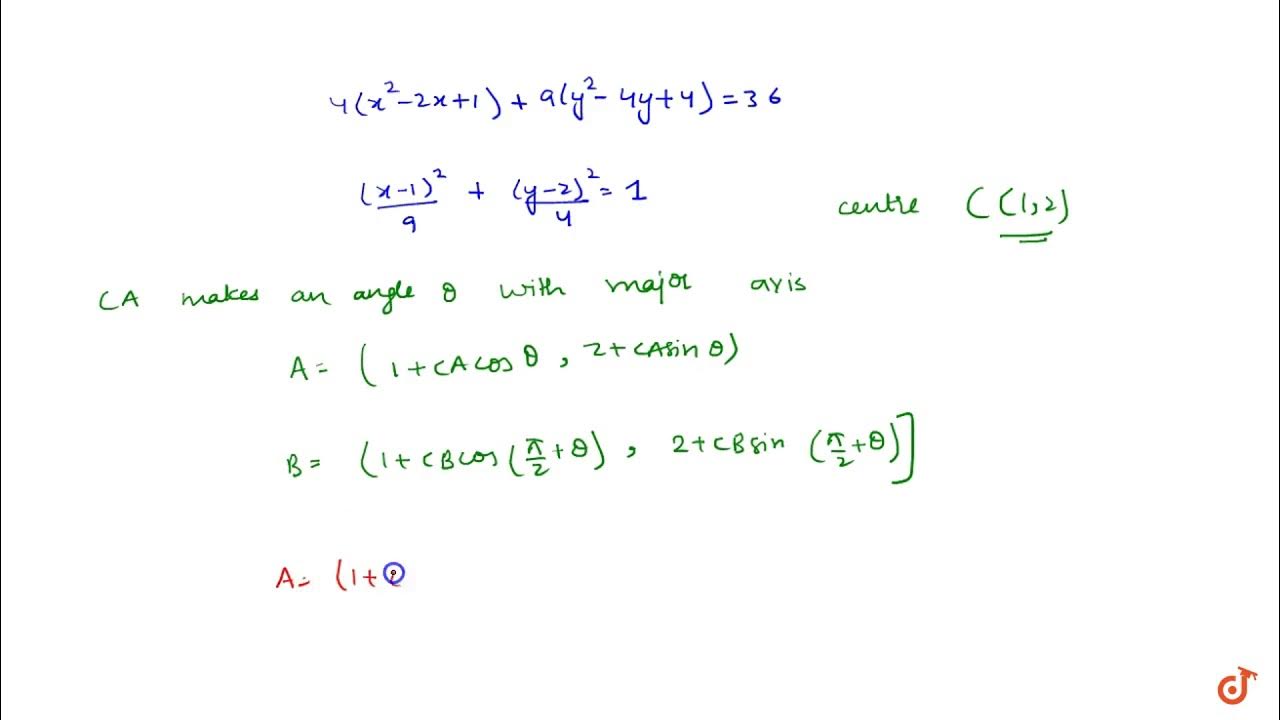 4(x²-2x+1) + 9(y²-4y+4) = 36
(x-1)²/9 + (y-2)²/4 = 1
centre C(1,2)
CA makes an angle θ with major axis
A = (1+CA cos θ, 2+CA sin θ)
B = (1+CB cos(π/2+θ), 2+CB sin(π/2+θ)]
A= (1+